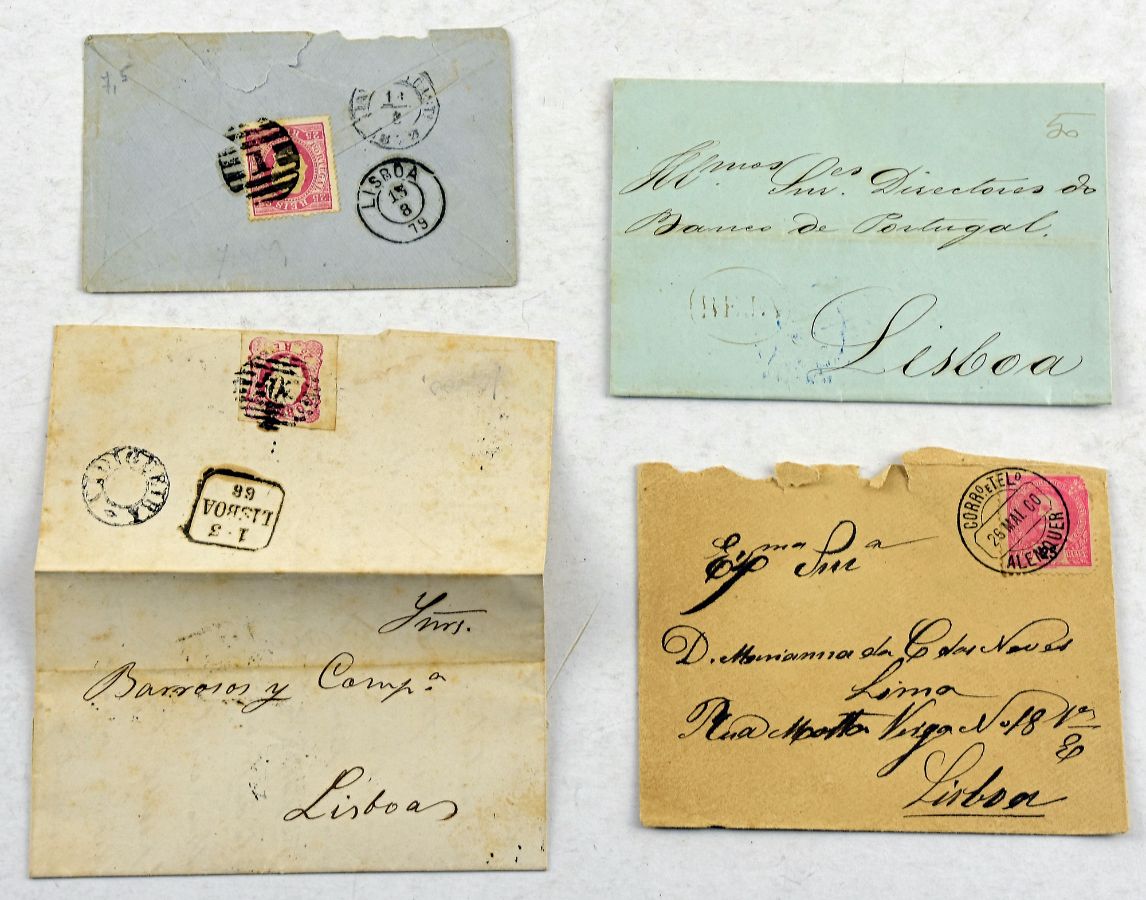 7,5
LISBOA
15
8
79
25
REIS
50
Il.mos Snr.es Directores do
Banco de Portugal.
BEJA
Lisboa
VIDIGUEIRA
1-3
LISBOA
66
Snrs.
Barrosos y Comp.a
Lisboa
CORRO E TELO
26 MAI. 00
ALEMQUER
Exma Snra
D. Marianna da C. das Neves
Lima
Rua Motta Veiga No 18
E
Lisboa